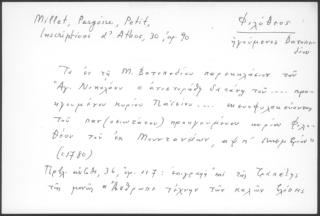 Millet, Pargoire, Petit,
Inscriptions d'Athos, 30, ἀρ. 90
Φιλόθεος
ἡγούμενος Βατοπε-
δίου
Τὸ ἐν τῇ Μ. Βατοπεδίου παρεκκλήσιον τοῦ
Ἁγ. Νικολάου ἀνιστορήθη δαπάνῃ τοῦ ... προ-
ηγουμένου κυρίου Παϊσίου ... σκευοφυλακεύοντος
τοῦ παν(οσιωτάτου) προηγουμένου κυρίου Φιλο-
θέου τοῦ ἐκ Μουντανίων, αψπʹ
(1780)
Πρβλ. αὐτόθι, 36, ἀρ. 117: ἐπιγραφὴ τῆς Τραπέζης
τῆς μονῆς "Ἄνθρωπε τύχην τῶν καλῶν